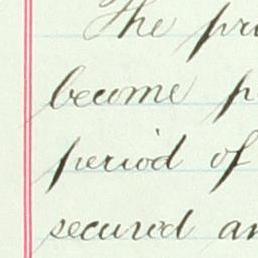 The
become
period of
secured